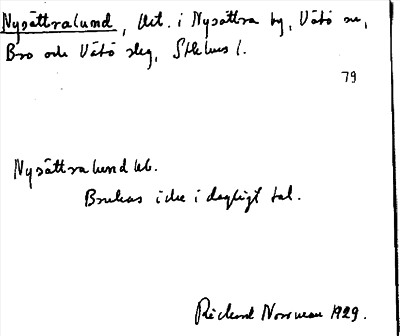 Nysättralund, Int. i Nysättra by, Vätö sn,
Bro och Vätö slg, Sthlms l.
79
Nysättralund lh.
Brukas icke i dagligt tal.
Rickard Norrman 1929.